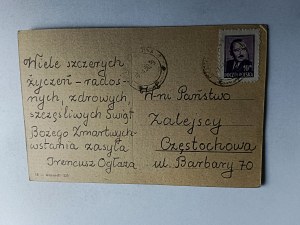 Wiele szczerych
życzeń – rados-
nych, zdrowych,
szczęśliwych Świąt
Bożego Zmartwych-
wstania zasyła
Ireneusz Ogłaza
W-ni Państwo
Zalejscy
Częstochowa
ul. Barbary 70